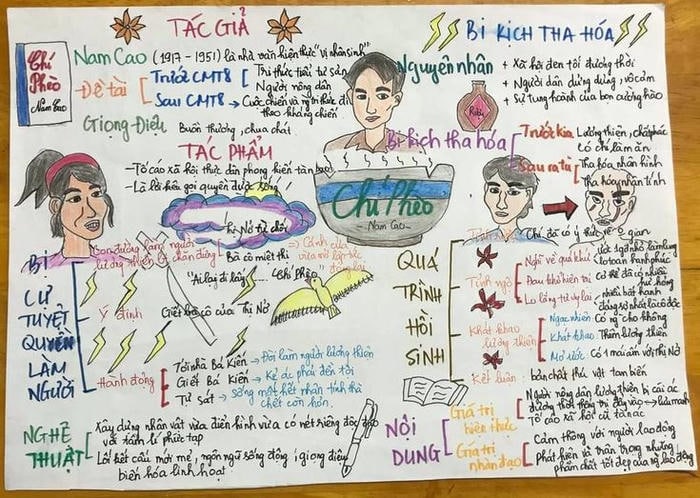 TÁC GIẢ
Chí
Phèo
Nam Cao
Nam Cao (1917 - 1951) là nhà văn hiện thực "vị nhân sinh"
Đề tài
Trước CMT8
Trí thức tiểu tư sản
Người nông dân
Sau CMT8 → Cuộc chiến và
theo kháng chiến
Giọng Điệu
Buồn thương, chua chát
TÁC PHẨM
- Tố cáo xã hội thực dân phong kiến tàn bạo
- Là lời kêu gọi quyền được sống
BI KỊCH THA HÓA
Nguyên nhân
+ Xã hội đen tối đương thời
+ Người dân dửng dưng, vô cảm
+ Sự tung hoành của bọn cường hào
Rượu
Bi kịch tha hóa
Trước kia
Lương thiện, chất phác
có chí làm ăn
Sau ra tù
Tha hóa nhân hình
Tha hóa nhân tính
Chí Phèo
- Nam Cao -
BI
CỰ
TUYỆT
QUYỀN
LÀM
NGƯỜI
Con đường làm người
lương thiện bị chặn đứng
Thị Nở từ chối
Bà cô miệt thị
=> Cánh cửa
"Ai lại đi lấy
Chí Phèo"
Ý định
Giết bà cô của Thị Nở
Hành động
Tới nhà Bá Kiến → Đòi làm người lương thiện
Giết Bá Kiến → Kẻ ác phải đền tội
Tự sát → sống một hết nhân tính thà
chết còn hơn.
QUÁ
TRÌNH
HỒI
SINH
Chí đã có ý thức về
gian
Tỉnh ngộ
Nghĩ về quá khứ
Đau khổ hiện tại
Lo lắng tương lai
Khát khao
lương thiện
Ngạc nhiên
Khát khao: Thèm lương thiện
Mơ ước: Có 1 mái ấm với Thị Nở
Kết luận: bản chất thú vật tan biến
NGHỆ
THUẬT
Xây dựng nhân vật vừa điển hình vừa có nét riêng độc đáo
với tâm lí phức tạp
Lối kết cấu mới mẻ, ngôn ngữ sống động, giọng điệu
biến hóa linh hoạt
NỘI
DUNG
Giá trị
hiện thực
Người nông dân lương thiện bị cái ác
đương thời thống trị đẩy vào → lưu manh
Tố cáo xã hội cũ tàn ác
Giá trị
nhân đạo
Cảm thông với người lao động
Phát hiện và trân trọng những
phẩm chất tốt đẹp của người lao động